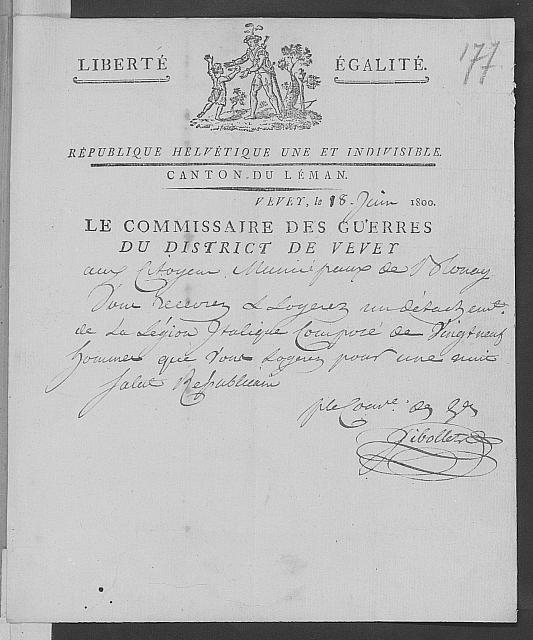 177
LIBERTÉ ÉGALITÉ.
RÉPUBLIQUE HELVÉTIQUE UNE ET INDIVISIBLE.
CANTON DU LÉMAN.
VEVEY, le 18. Juin 1800.
LE COMMISSAIRE DES GUERRES
DU DISTRICT DE VEVEY
aux Citoyens Municipaux de
Vous recevrez & Logerez un détachemt.
de La Légion Italique Composé de Vingt neuf
hommes que Vous Logerez pour une nuit
Salut Républicain
ple Comre. des
Dibollet